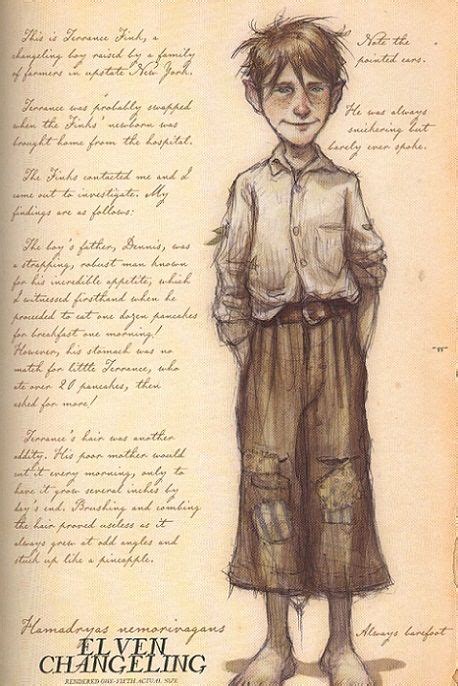 This is Terrance Fink, a
changeling boy raised by a family
of farmers in upstate New York.
Terrance was probably swapped
when the Finks' newborn was
brought home from the hospital.
The Finks contacted me and I
came out to investigate. My
findings are as follows:
The boy's father, Dennis, was
a strapping, robust man known
for his incredible appetite, which
I witnessed firsthand when he
proceeded to eat one dozen pancakes
for breakfast one morning!
However, his stomach was no
match for little Terrance, who
ate over 20 pancakes, then
asked for more!
Terrance's hair was another
oddity. His poor mother would
cut it every morning, only to
have it grow several inches by
day's end. Brushing and combing
the hair proved useless as it
always grew at odd angles and
stuck up like a pineapple.
Note the
pointed ears.
He was always
snickering but
barely ever spoke.
Hamadryas nemorivagans
ELVEN
CHANGELING
RENDERED ONE-FIFTH ACTUAL SIZE
Always barefoot